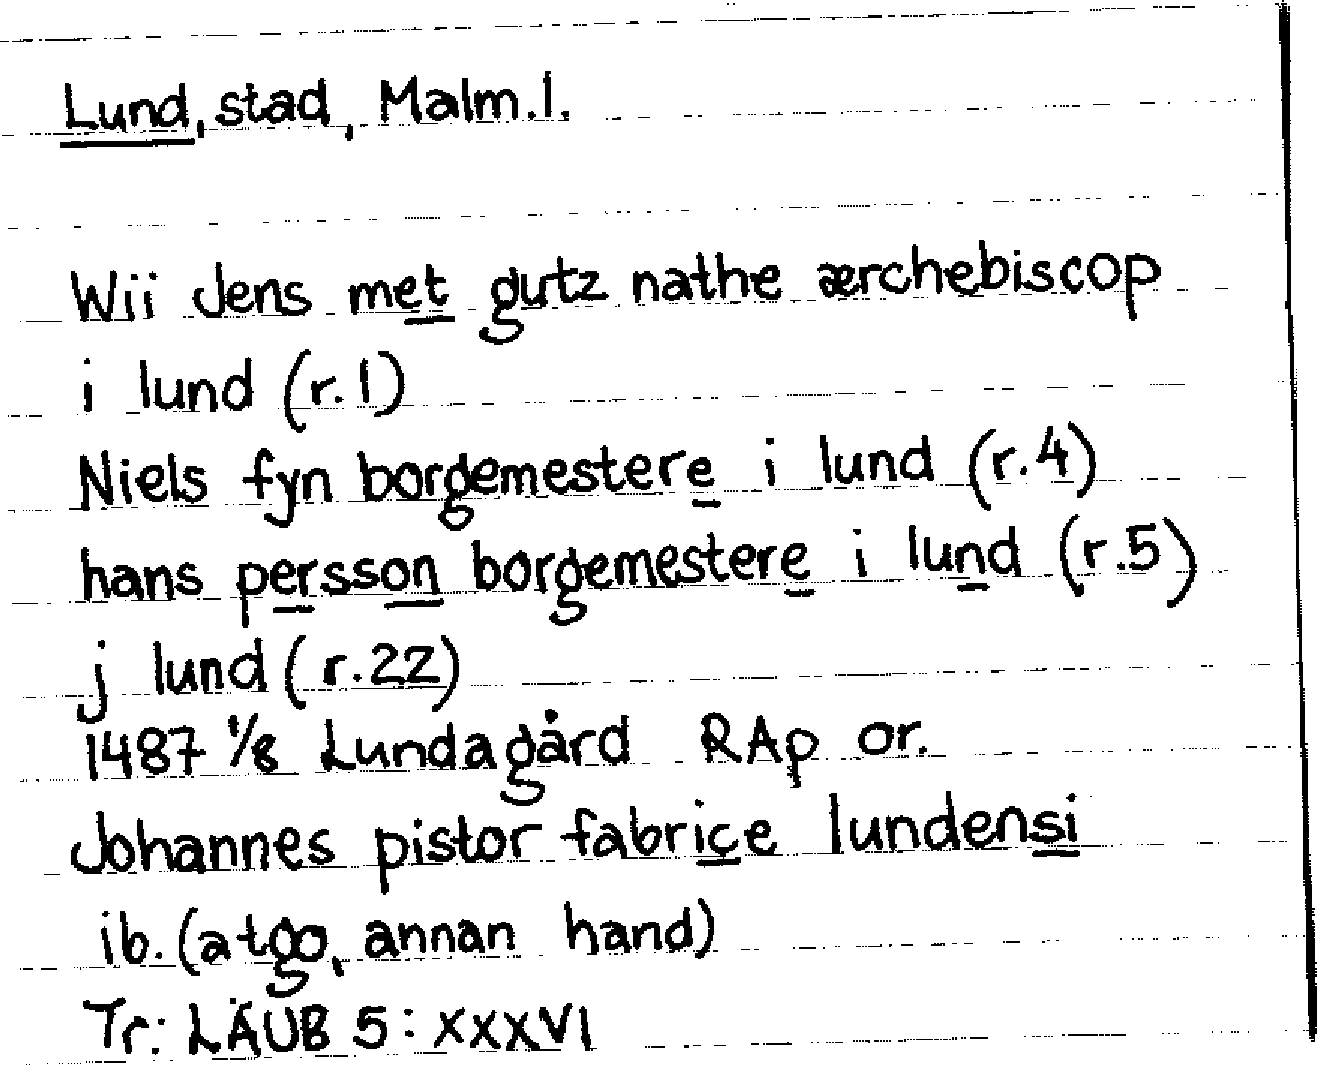 Lund, stad, Malm.l.
Wii Jens met gutz nathe ærchebiscop
i lund (r.1)
Niels fyn borgemestere i lund (r.4)
hans persson borgemestere i lund (r.5)
j lund (r.22)
1487 1/8 Lundagård RAp or.
Johannes pistor fabrice lundensi
ib. (atgo, annan hand)
Tr: LÄUB 5: XXXVI